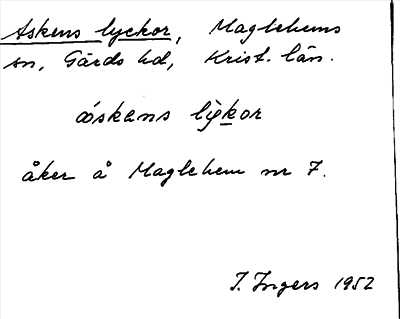 Askens lyckor, Maglehems
sn, Gärds hd, Krist. län.
óskans lykor
åker å Maglehem nr 7.
I. Ingers 1952